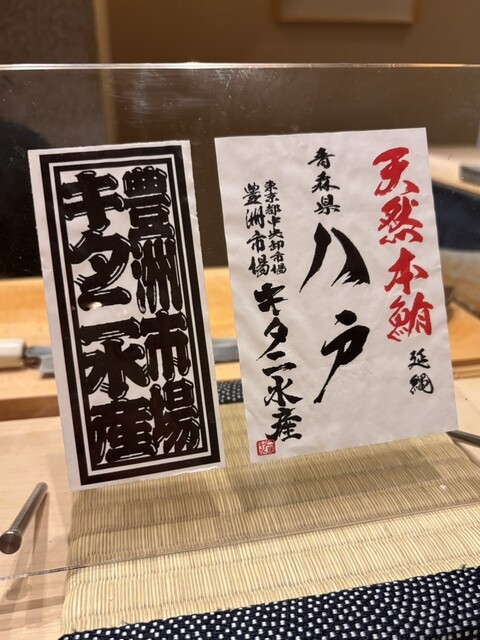 豊洲市場
キタニ水産
天然本鮪
延縄
青森県
八戸
東京都中央卸市場
豊洲市場
キタニ水産